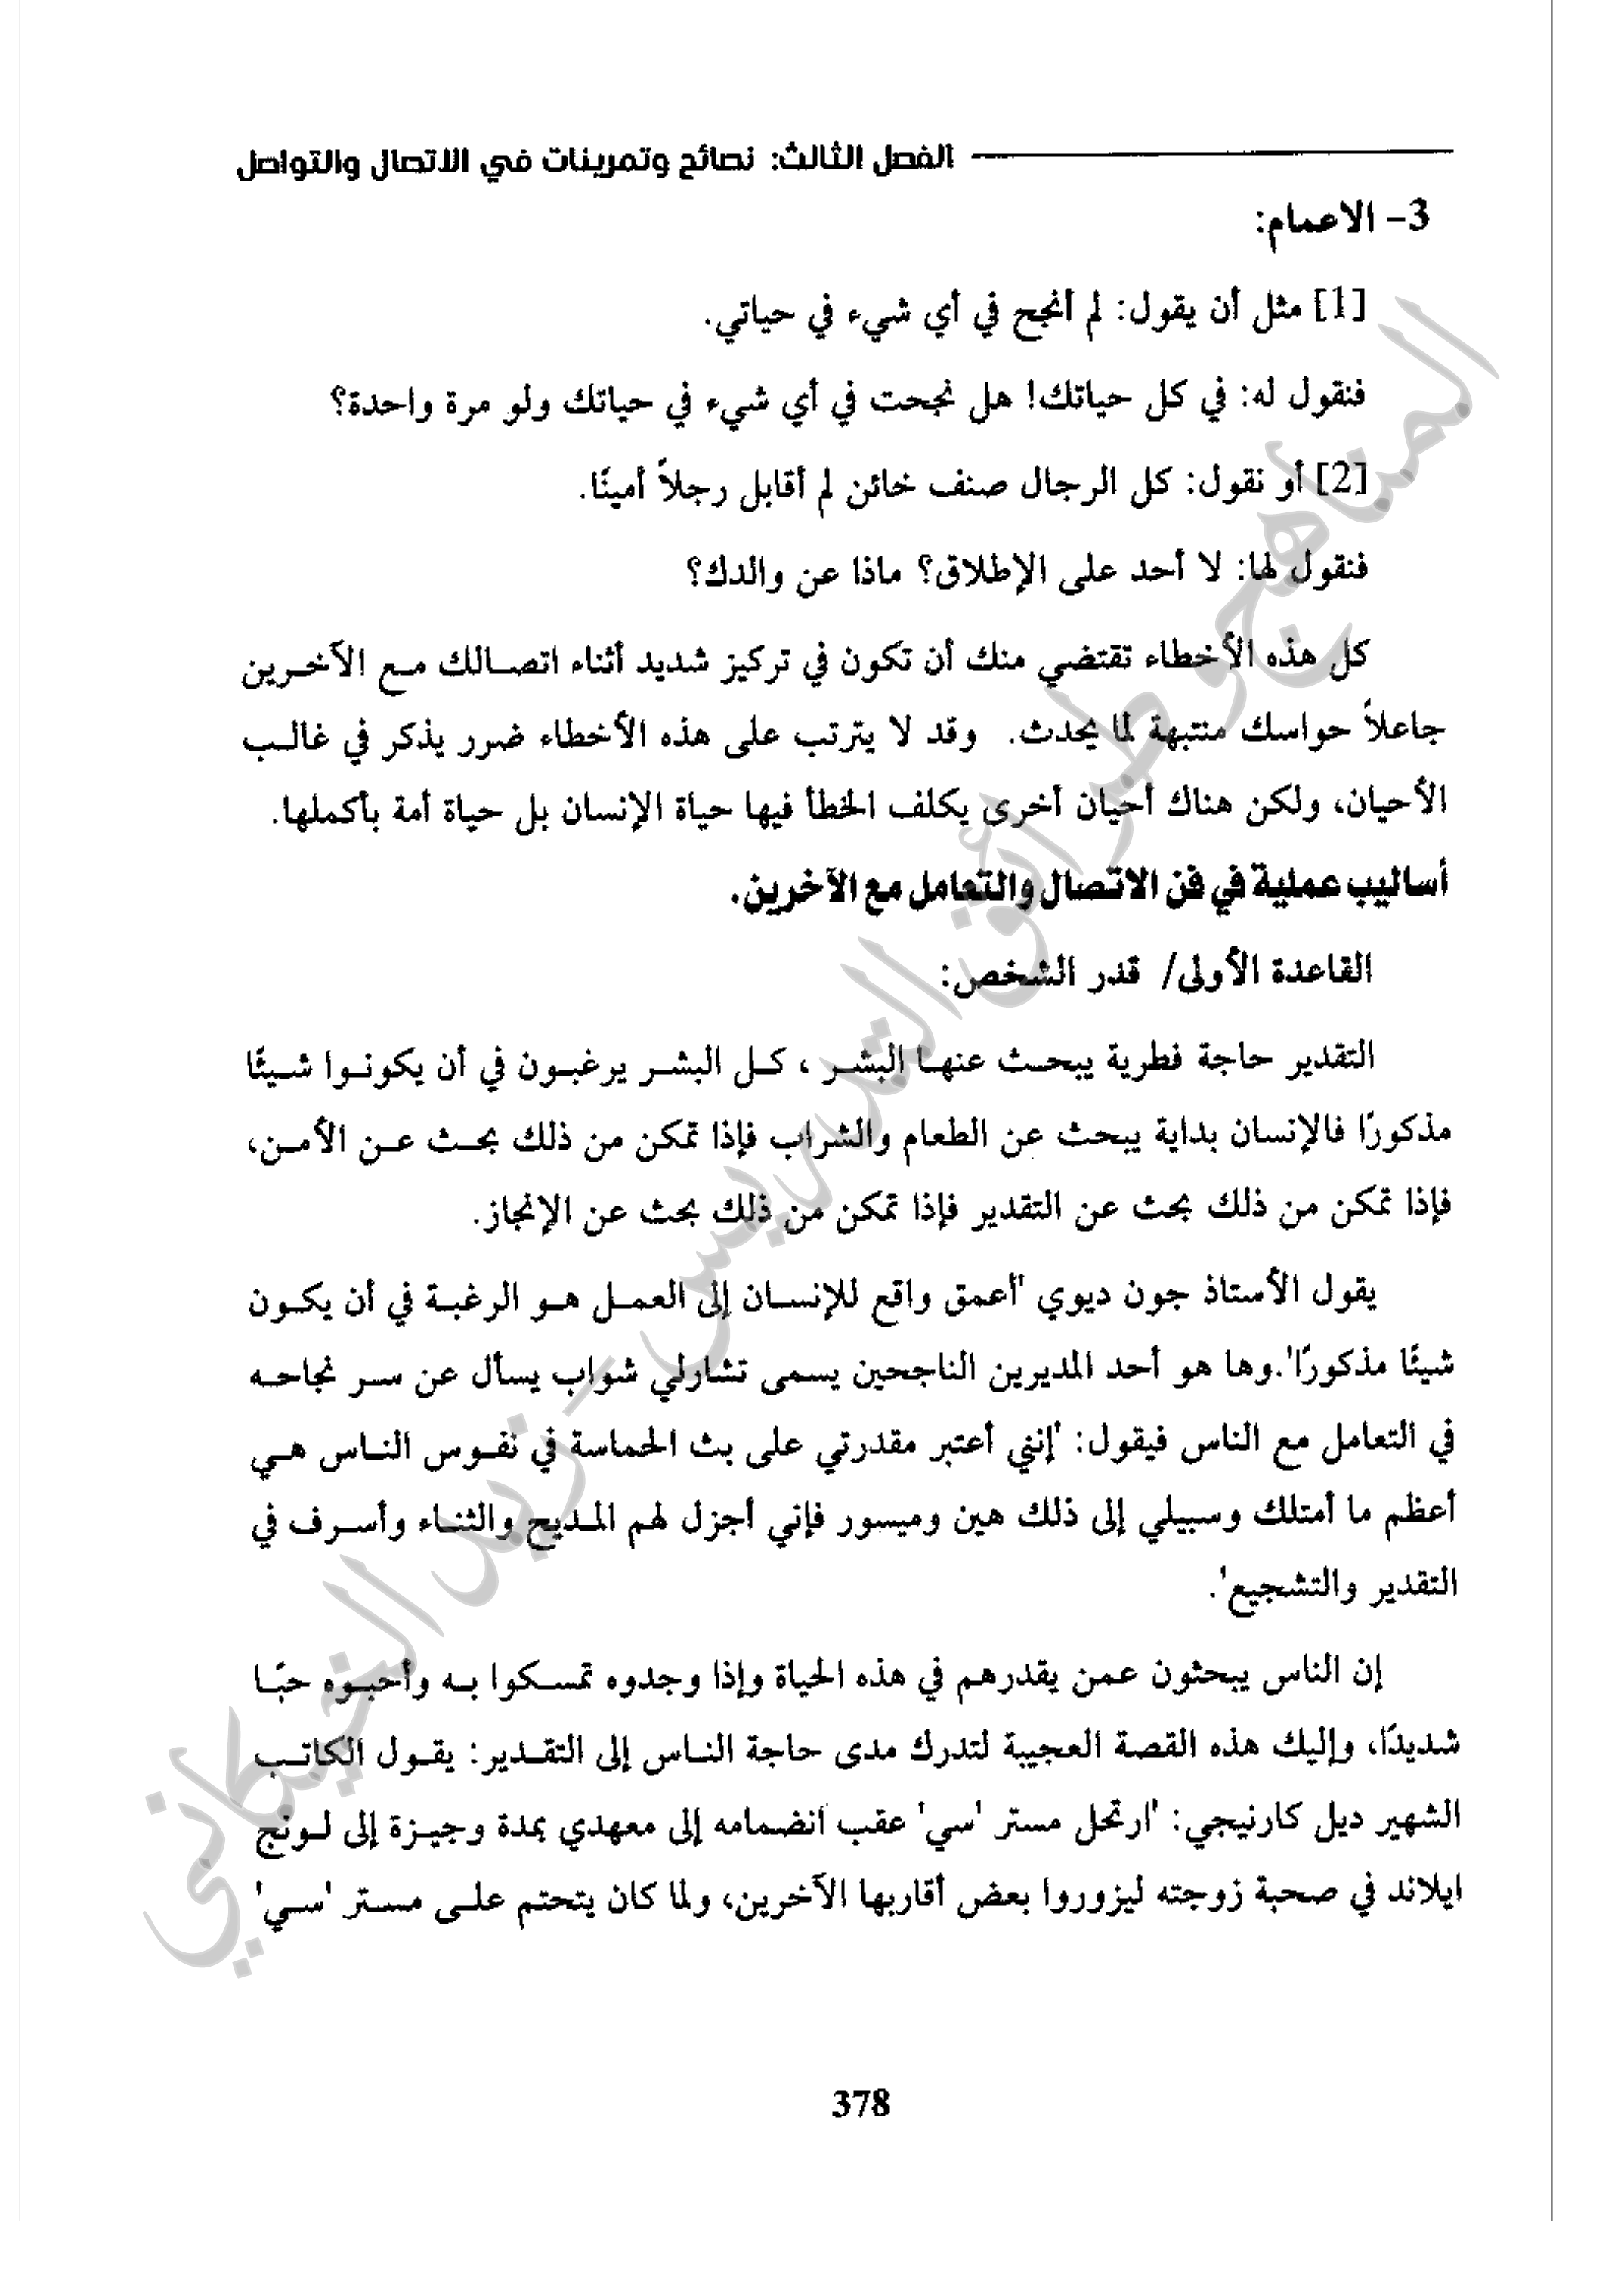 الفصل الثالث: نصائح وتمرينات في الاتصال والتواصل
3- الاعمام:
[1] مثل أن يقول: لم أنجح في أي شيء في حياتي.
فنقول له: في كل حياتك! هل نجحت في أي شيء في حياتك ولو مرة واحدة؟
[2] أو نقول: كل الرجال صنف خائن لم أقابل رجلاً أمينًا.
فنقول لها: لا أحد على الإطلاق؟ ماذا عن والدك؟
كل هذه الأخطاء تقتضي منك أن تكون في تركيز شديد أثناء اتصالك مع الآخرين
جاعلاً حواسك منتبهة لما يحدث. وقد لا يترتب على هذه الأخطاء ضرر يذكر في غالب
الأحيان، ولكن هناك أحيان أخرى يكلف الخطأ فيها حياة الإنسان بل حياة أمة بأكملها.
أساليب عملية في فن الاتصال والتعامل مع الآخرين.
القاعدة الأولى/ قدر الشخص:
التقدير حاجة فطرية يبحث عنها البشر ، كل البشر يرغبون في أن يكونوا شيئًا
مذكورًا فالإنسان بداية يبحث عن الطعام والشراب فإذا تمكن من ذلك بحث عن الأمن،
فإذا تمكن من ذلك بحث عن التقدير فإذا تمكن من ذلك بحث عن الإنجاز.
يقول الأستاذ جون ديوي "أعمق واقع للإنسان إلى العمل هو الرغبة في أن يكون
شيئًا مذكورًا".وها هو أحد المديرين الناجحين يسمى تشارلي شواب يسأل عن سر نجاحه
في التعامل مع الناس فيقول: "إنني أعتبر مقدرتي على بث الحماسة في نفوس الناس هي
أعظم ما أمتلك وسبيلي إلى ذلك هين وميسور فإني أجزل لهم المديح والثناء وأسرف في
التقدير والتشجيع".
إن الناس يبحثون عمن يقدرهم في هذه الحياة وإذا وجدوه تمسكوا به وأحبوه حبًا
شديدًا، وإليك هذه القصة العجيبة لتدرك مدى حاجة الناس إلى التقدير: يقول الكاتب
الشهير ديل كارنيجي: "ارتحل مستر "سي" عقب انضمامه إلى معهدي بمدة وجيزة إلى لونج
ايلاند في صحبة زوجته ليزوروا بعض أقاربها الآخرين، ولما كان يتحتم على مستر "سي"
378
المناهج وطرائق التدريس - زيد الخيكاني